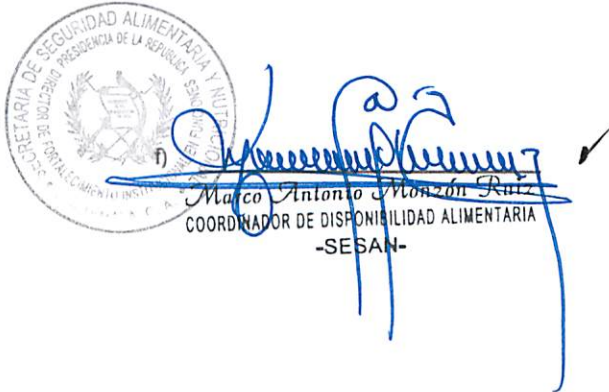 SECRETARIA DE SEGURIDAD ALIMENTARIA Y NUTRICIO
PRESIDENCIA DE LA REPUBLICA
DIRECTOR DE FORTALECIMIENTO INSTITUCIONAL EN FUNCIONES
f)
Marco Antonio Monzón Ruiz
COORDINADOR DE DISPONIBILIDAD ALIMENTARIA
-SESAN-